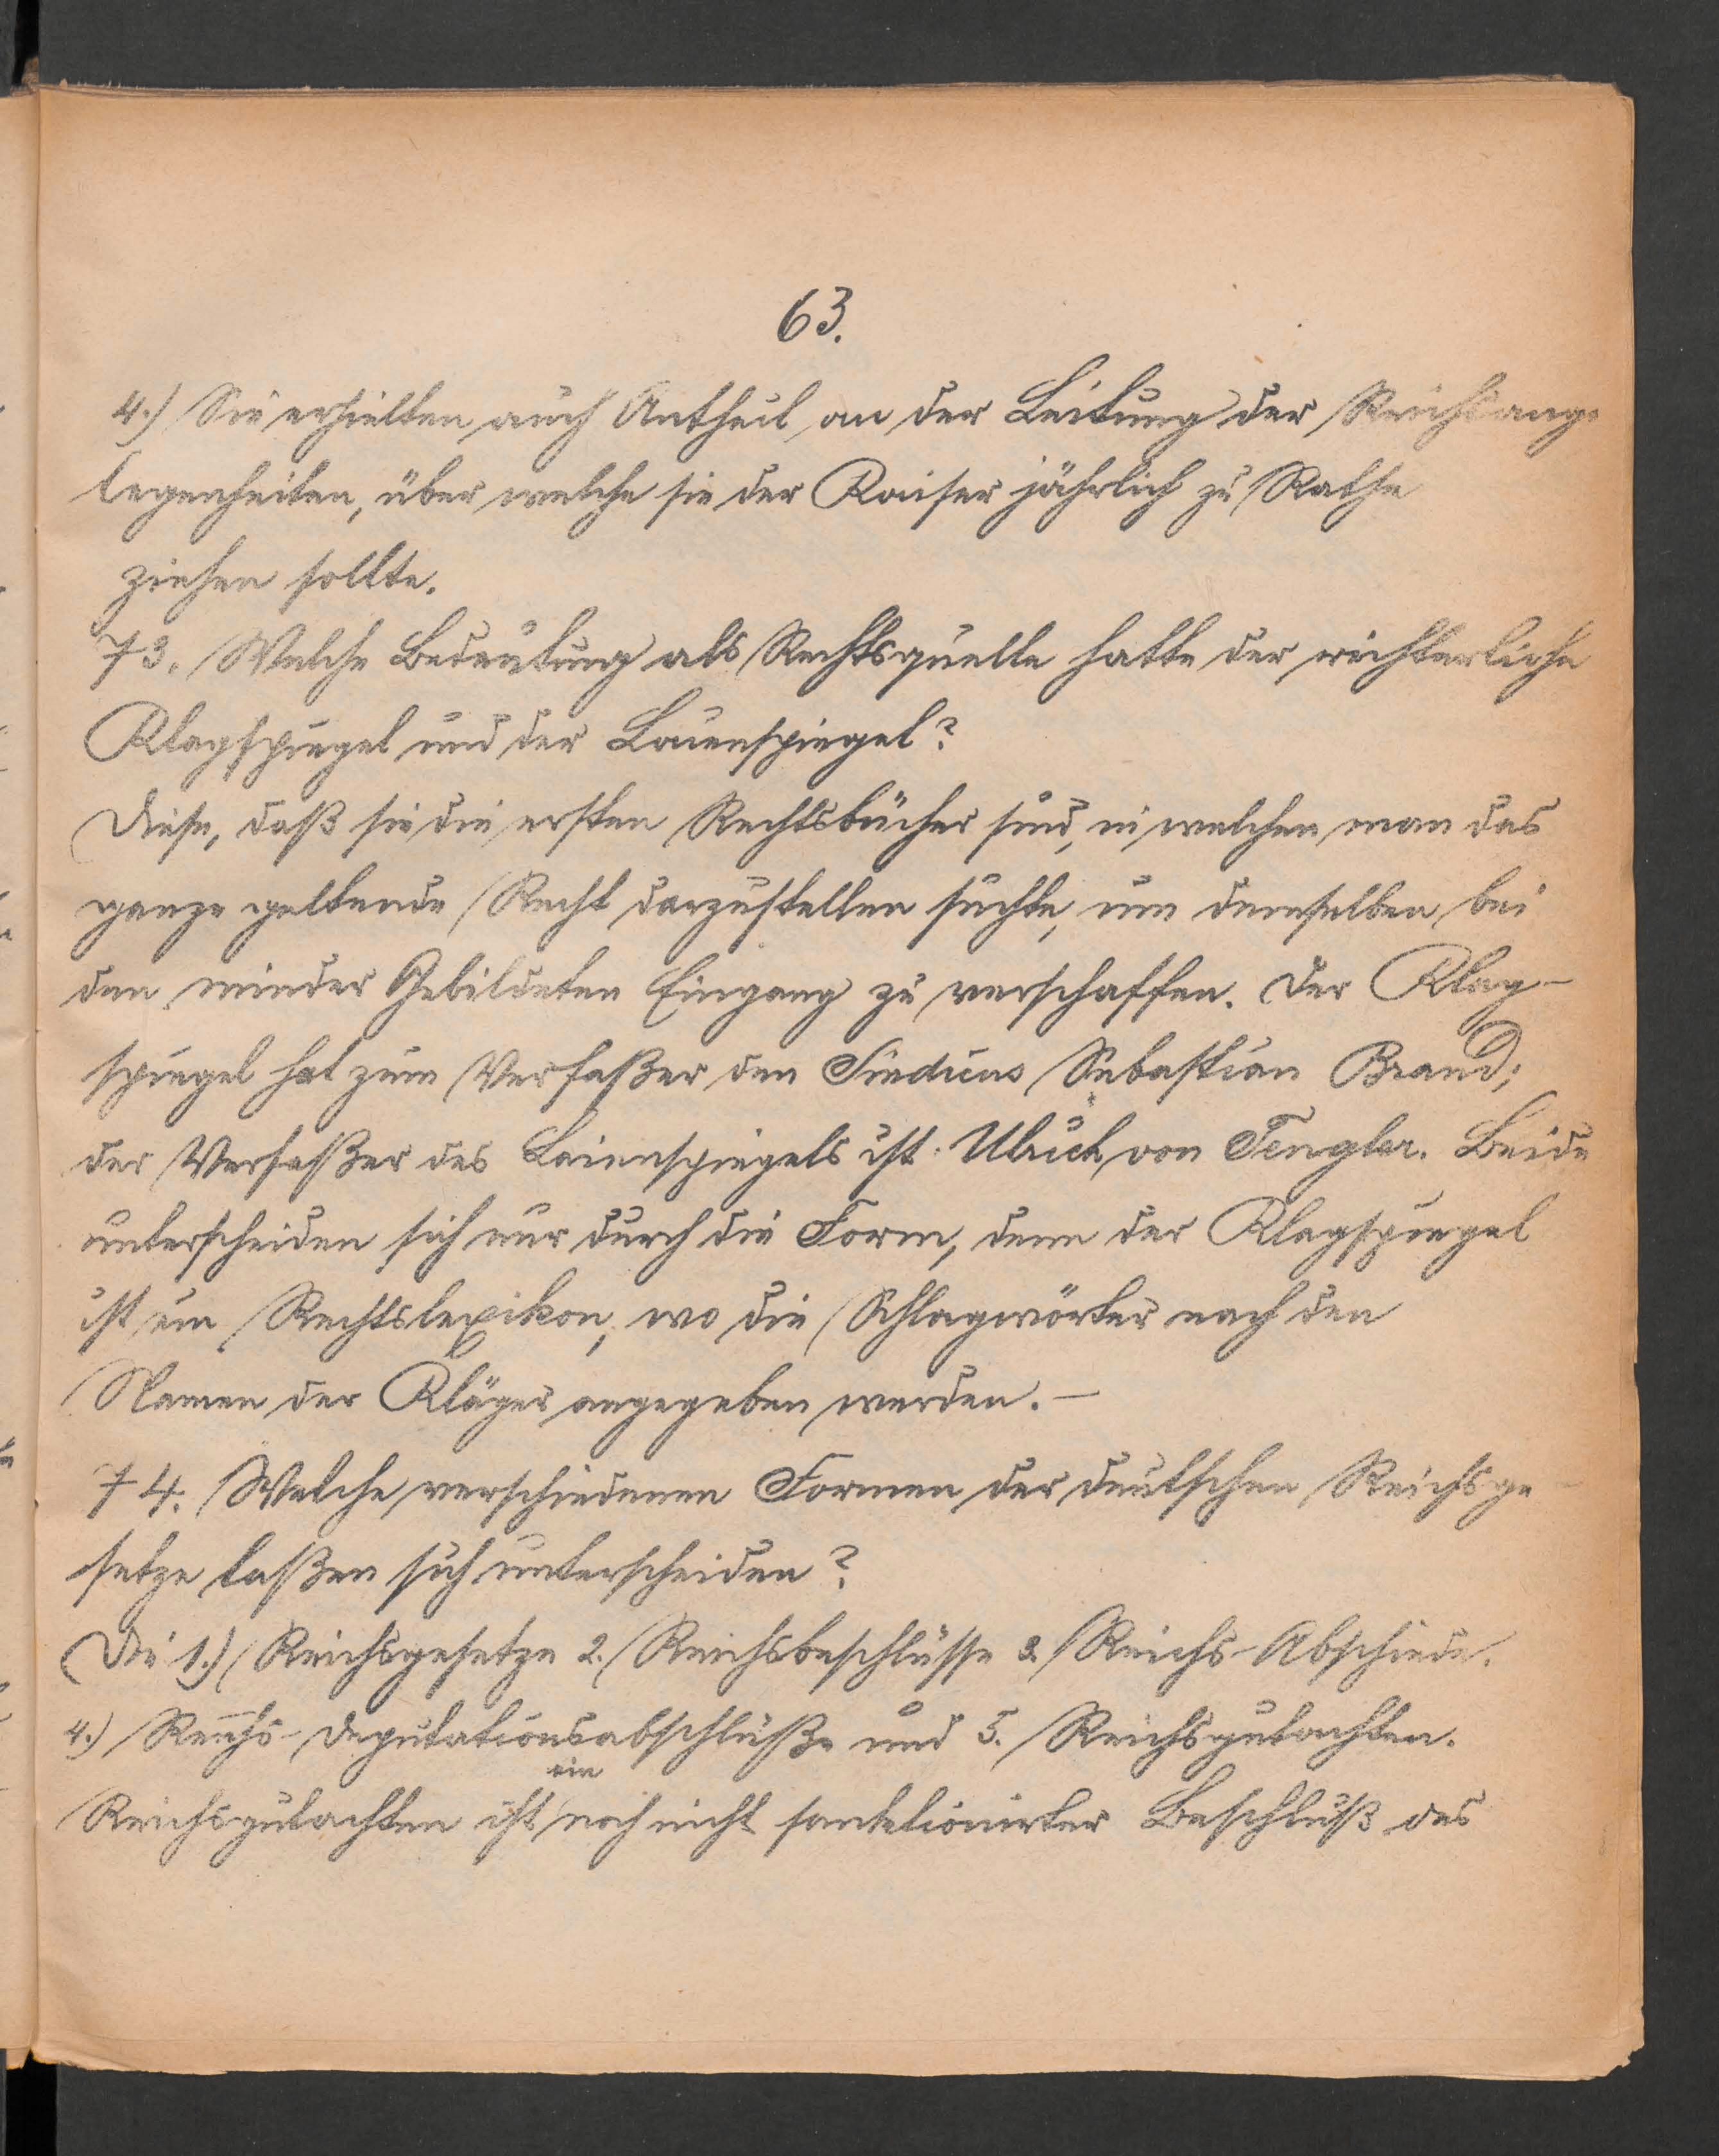 63.
4.) Sie erhielten auch Antheil an der Leitung der Reichsange
legenheiten, über welche sie der Kaiser jährlich zu Rathe
ziehen sollte.
73. Welche Bedeutung als Rechtsquelle hatte der richterliche
Klagspiegel und der Laienspiegel?
Diese, daß sie die ersten Rechtsbücher sind, in welchen man das
ganze geltende Recht darzustellen suchte, um demselben bei
den minder Gebildeten Eingang zu verschaffen. Der Klag-
spiegel hat zum Verfaßer den Sindicus Sebastian Brand;
der Verfaßer des Laienspiegels ist Ulrich von Tengler. Beide
unterscheiden sich nur durch die Form, denn der Klagspiegel
ist ein Rechtslexikon, wo die Schlagwörter nach den
Namen der Kläger angegeben werden. —
74. Welche verschiedenen Formen der deutschen Reichsge-
setze laßen sich unterscheiden?
Die 1.) Reichsgesetze 2. Reichsbeschlüsse 3 Reichs-Abschiede.
4.) Reichs-Deputationsabschlüße und 5. Reichsgutachten.
Reichsgutachten ist ein noch nicht sanktionirter Beschluß des